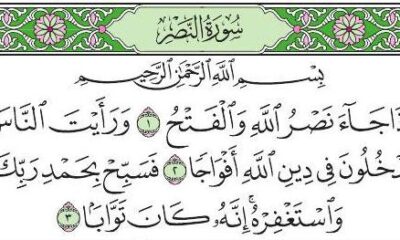 سُورَةُ النَّصْرِ
بِسْمِ اللَّهِ الرَّحْمَٰنِ الرَّحِيمِ
ذَا جَاءَ نَصْرُ اللَّهِ وَالْفَتْحُ ١ وَرَأَيْتَ النَّاسَ
دْخُلُونَ فِي دِينِ اللَّهِ أَفْوَاجًا ٢ فَسَبِّحْ بِحَمْدِ رَبِّكَ
وَاسْتَغْفِرْهُ ۚ إِنَّهُ كَانَ تَوَّابًا ٣